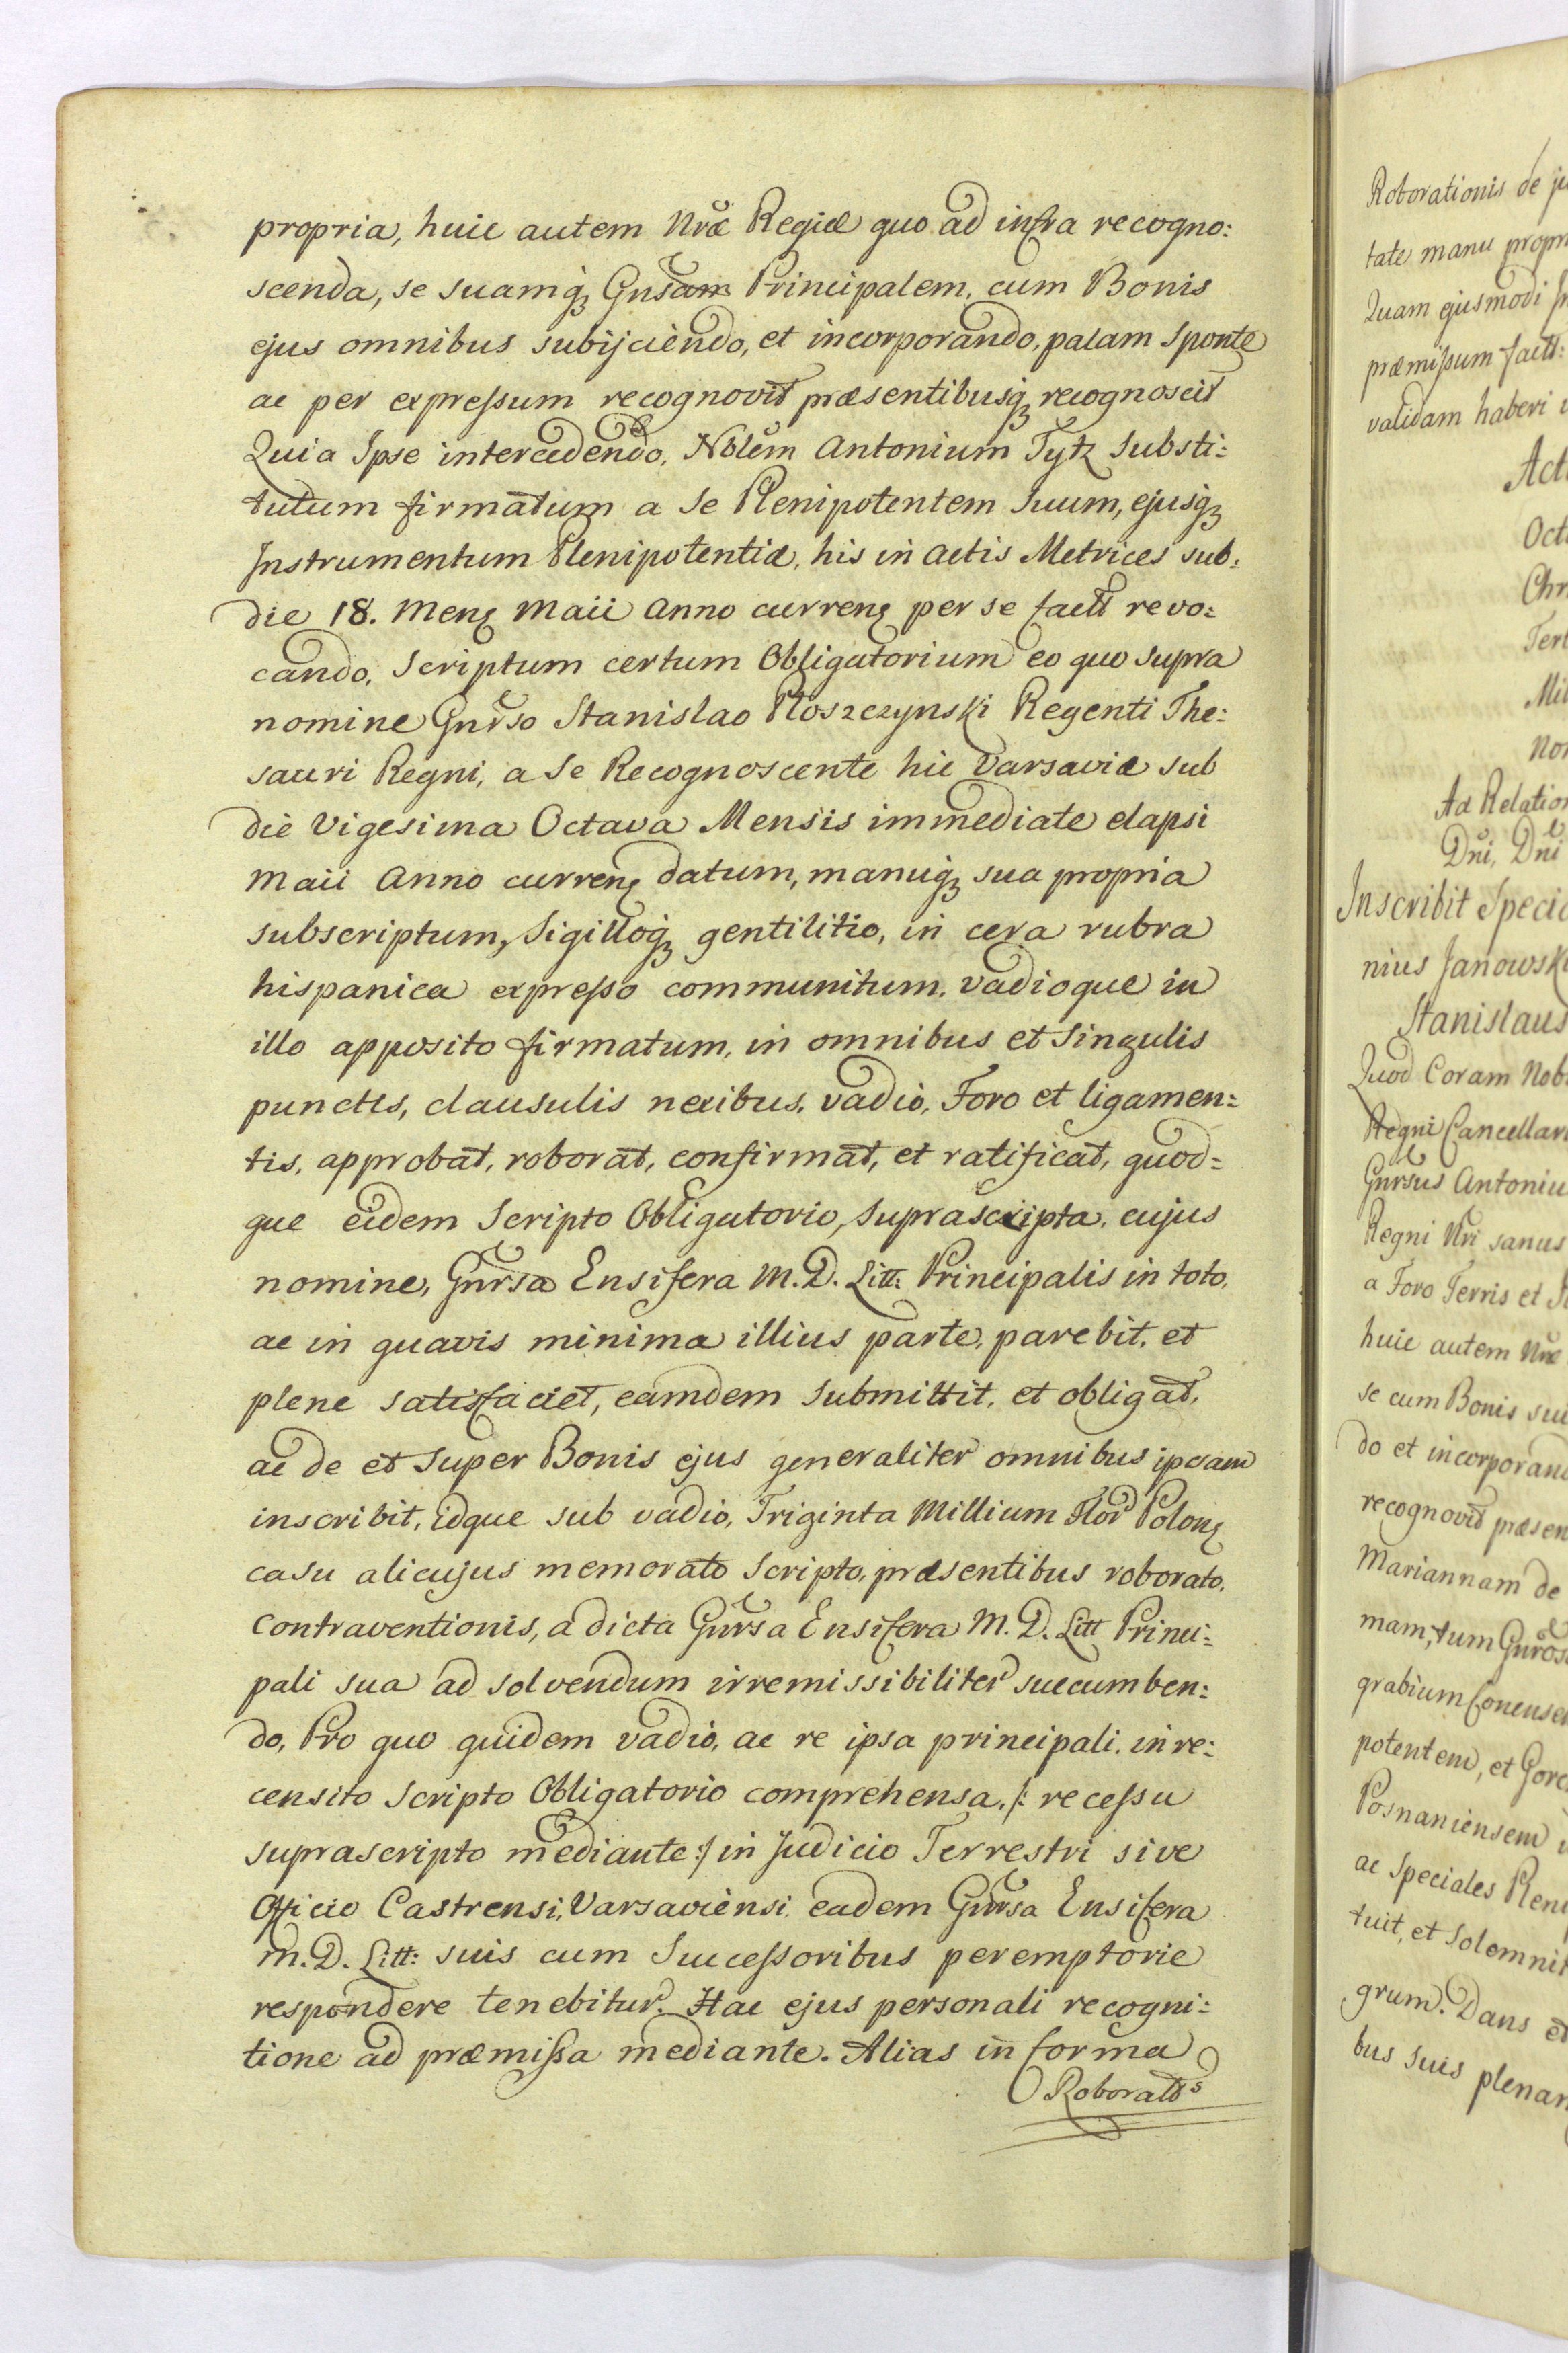 propria, huic autem Nræ Regiæ quo ad infra recogno:
scenda, se suamq́ꝫ Gnsam Principalem, cum Bonis
ejus omnibus subijciendo, et incorporando, palam Sponte
ac per expressum recognovit præsentibusq́ꝫ recognoscit
Quia Ipse intercedendo, Nblem Antonium Tytz Substi:
tutum firmatum a Se Plenipotentem Suum, ejusq́ꝫ
Instrumentum Plenipotentiæ, his in Actis Metrices sub:
die 18. Menꝫ Maii Anno currenꝫ per se factt revo:
cando, Scriptum certum Obligatorium eo quo supra
nomine Gnrso Stanislao Płoszczynski Regenti The:
sauri Regni, a Se Recognoscente hic Varsaviæ sub
die Vigesima Octava Mensis immediate elapsi
Maii Anno currenꝫ datum, manuq́ꝫ sua propria
subscriptum, Sigilloq́ꝫ gentilitio, in cera rubra
hispanica expresso communitum, vadioque in
illo apposito firmatum, in omnibus et Singulis
punctis, clausulis nexibus, vadio, Foro et ligamen:
tis, approbat, roborat, confirmat, et ratificat, quod:
que eidem Scripto Obligatorio, suprascripta, cujus
nomine, Gnrsa Ensifera M. D. Litt: Principalis in toto,
ac in quavis minima illius parte, parebit, et
plene satisfaciet, eamdem Submittit, et obligat,
ac de et Super Bonis ejus generaliter omnibus ipsam
inscribit, idque sub vadio, Triginta Millium Flor Polonꝫ
casu alicujus memorato Scripto, præsentibus roborato,
contraventionis, a dicta Gnrsa Ensifera M. D. Litt Princi:
pali sua ad solvendum irremissibiliter succumben:
do, Pro quo quidem vadio, ac re ipsa principali, in re:
censito Scripto Obligatorio comprehensa, /: recessu
suprascripto mediante :/ in Judicio Terrestri sive
Officio Castrensi, Varsaviensi, eadem Gnrsa Ensifera
M. D. Litt: suis cum Successoribus peremptorie
respondere tenebitur. Hac ejus personali recogni:
tione ad præmissa mediante. Alias in forma
Roboratts
Roborationis de
tate manu propr
Quam ejusmodi
præmissum factt:
validam haberi
Act
Oct
Chr
Ter
Mil
Non
Ad Relation
Dni, Dni
Inscribit Specia
nius Janowski
Stanislaus
Quod Coram Nob
Regni Cancellar
Gnrsus Antoniu
Regni Nri sanus
a Foro Terris et
huic autem Nræ
se cum Bonis sui
do et incorporand
recognovit præsen
Mariannam de
mam, tum Gnros
grabium Concuse
potentem, et Gor
Posnaniensem
ac Speciales Pleni
tuit, et Solemnit
grum. Dans et
bus suis plenar